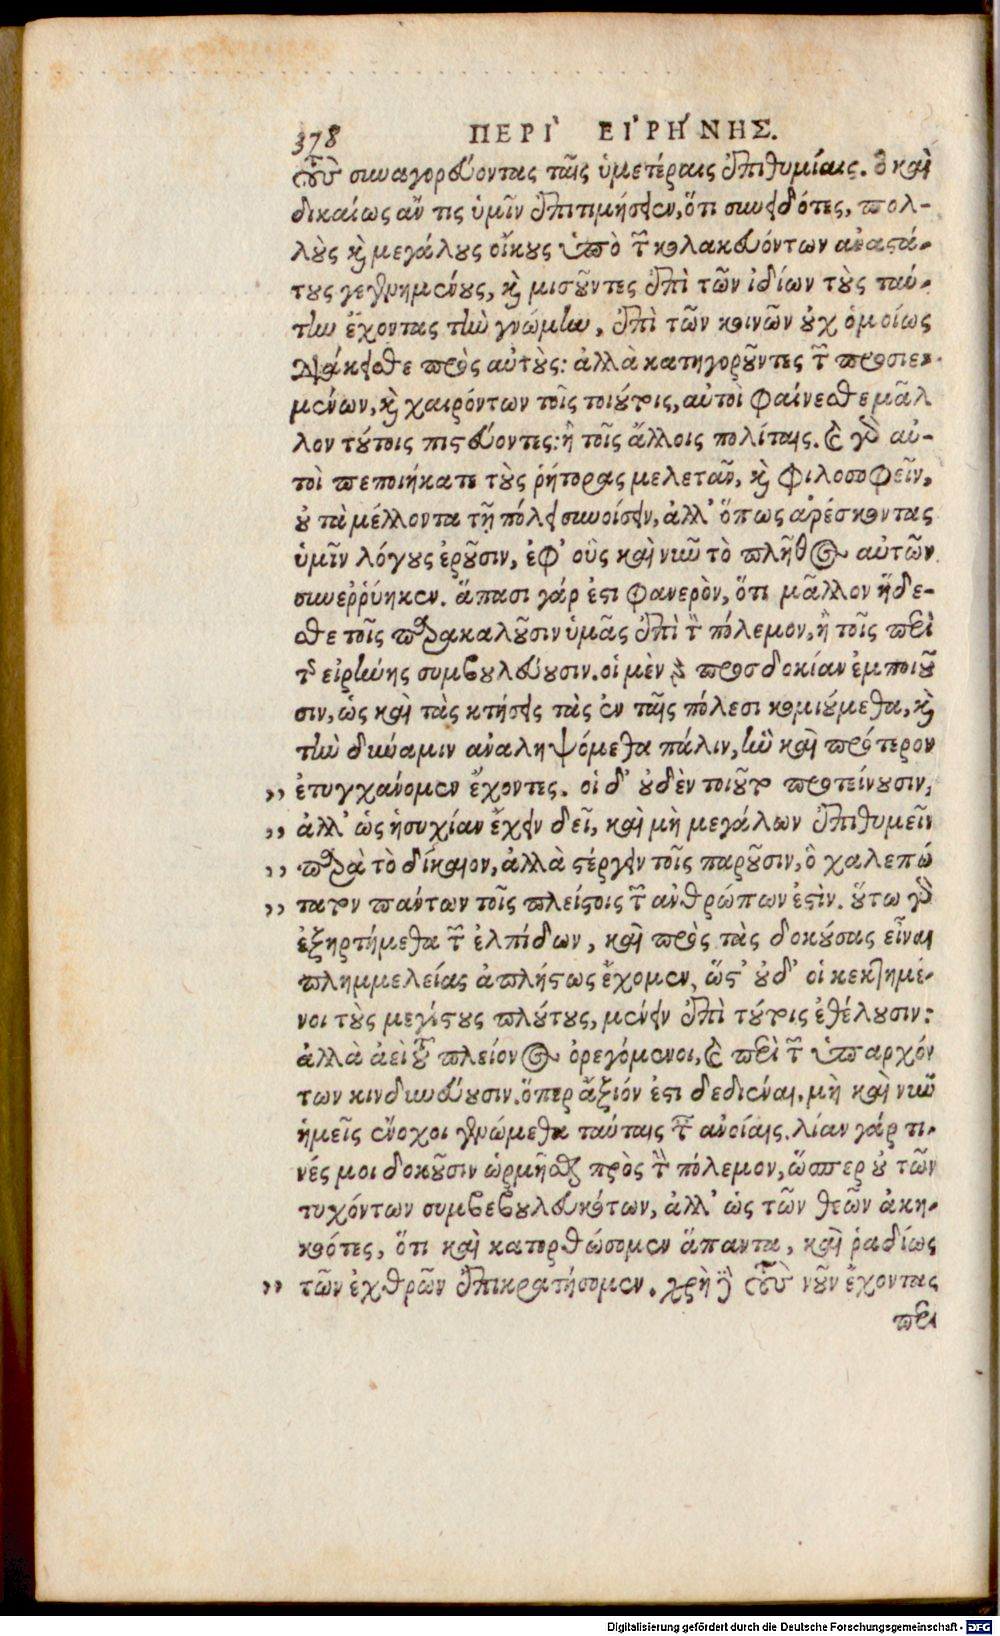 378 ΠΕΡΙ` ΕΙ᾿ΡΗ΄ΝΗΣ.
τοὺς συναγορεύοντας ταῖς ὑμετέραις ἐπιθυμίαις. ὃ καὶ
δικαίως ἄν τις ὑμῖν ἐπιτιμήσειεν, ὅτι συνειδότες, πολ-
λοὺς καὶ μεγάλους οἴκους ὑπὸ τῶν κολακευόντων ἀναστά-
τους γεγενημένους, καὶ μισοῦντες ἐπὶ τῶν ἰδίων τοὺς ταύ-
την ἔχοντας τὴν γνώμην, ἐπὶ τῶν κοινῶν οὐχ ὁμοίως
διάκεισθε πρὸς αὐτούς: ἀλλὰ κατηγοροῦντες τῶν προσιε-
μένων, καὶ χαιρόντων τοῖς τοιούτοις, αὐτοὶ φαίνεσθε μᾶλ
λον τούτοις πιστεύοντες: ἢ τοῖς ἄλλοις πολίταις. καὶ γὰρ αὐ-
τοὶ πεποιήκατε τοὺς ῥήτορας μελετᾶν, καὶ φιλοσοφεῖν,
οὐ τὰ μέλλοντα τῇ πόλει συνοίσειν, ἀλλ' ὅπως ἀρέσκοντας
ὑμῖν λόγους ἐροῦσιν, ἐφ' οὓς καὶ νῦν τὸ πλῆθος αὐτῶν
συνεῤῥύηκεν. ἅπασι γάρ ἐστι φανερὸν, ὅτι μᾶλλον ἥδε-
σθε τοῖς παρακαλοῦσιν ὑμᾶς ἐπὶ τὸν πόλεμον, ἢ τοῖς περὶ
τῆς εἰρήνης συμβουλεύουσιν. οἱ μὲν γὰρ προσδοκίαν ἐμποιοῦ
σιν, ὡς καὶ τὰς κτήσεις τὰς ἐν ταῖς πόλεσι κομιούμεθα, καὶ
τὴν δύναμιν ἀναληψόμεθα πάλιν, ἣν καὶ πρότερον
,, ἐτυγχάνομεν ἔχοντες. οἱ δ' οὐδὲν τοιοῦτο προτείνουσιν,
,, ἀλλ' ὡς ἡσυχίαν ἔχειν δεῖ, καὶ μὴ μεγάλων ἐπιθυμεῖν
,, παρὰ τὸ δίκαιον, ἀλλὰ στέργειν τοῖς παροῦσιν, ὃ χαλεπώ
,, τατον πάντων τοῖς πλείστοις τῶν ἀνθρώπων ἐστὶν. οὕτω γὰρ
ἐξηρτήμεθα τῶν ἐλπίδων, καὶ πρὸς τὰς δοκούσας εἶναι
πλημμελείας ἀπλήστως ἔχομεν, ὥστ' οὐδ' οἱ κεκτημέ-
νοι τοὺς μεγίστους πλούτους, μένειν ἐπὶ τούτοις ἐθέλουσιν:
ἀλλὰ ἀεὶ τοῦ πλείονος ὀρεγόμενοι, καὶ περὶ τῶν ὑπαρχόν
των κινδυνεύουσιν. ὅπερ ἄξιόν ἐστι δεδιέναι, μὴ καὶ νῦν
ἡμεῖς ἔνοχοι γενώμεθα ταύταις τῶν ἀνοίαις. λίαν γάρ τι-
νές μοι δοκοῦσιν ὡρμῆσθαι πρὸς τὸν πόλεμον, ὥσπερ οὐ τῶν
τυχόντων συμβεβουλευκότων, ἀλλ' ὡς τῶν θεῶν ἀκη-
κοότες, ὅτι καὶ κατορθώσομεν ἅπαντα, καὶ ῥαδίως
,, τῶν ἐχθρῶν ἐπικρατήσομεν. χρὴ δὲ τοὺς νοῦν ἔχοντας
περὶ
Digitalisierung gefördert durch die Deutsche Forschungsgemeinschaft - DFG